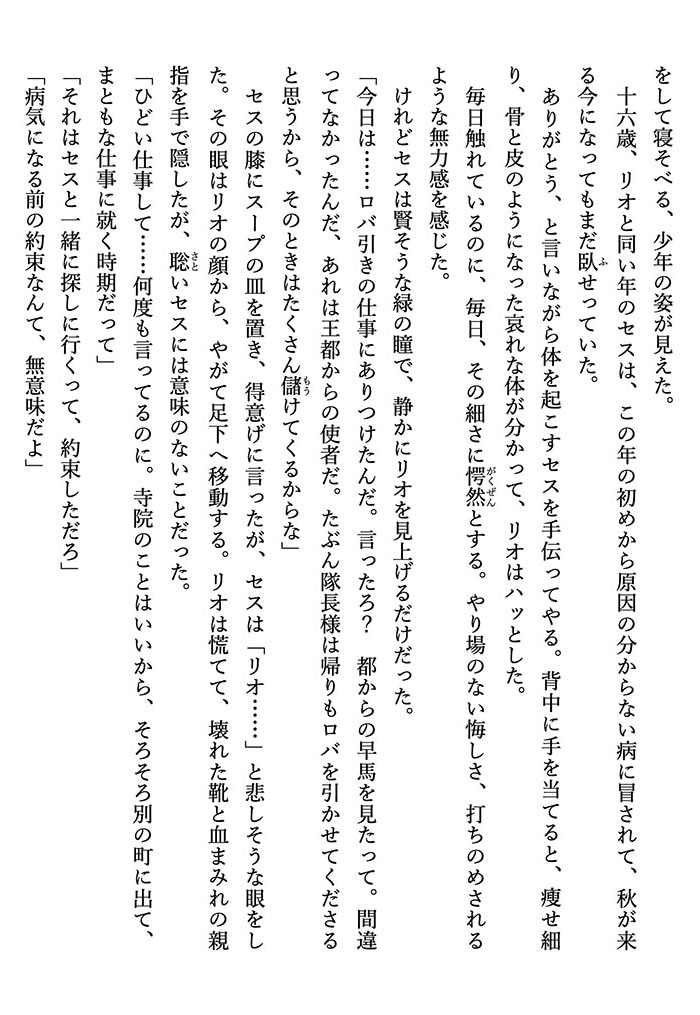 をして寝そべる、少年の姿が見えた。
　十六歳、リオと同い年のセスは、この年の初めから原因の分からない病に冒されて、秋が来
る今になってもまだ臥せっていた。
　ありがとう、と言いながら体を起こすセスを手伝ってやる。背中に手を当てると、痩せ細
り、骨と皮のようになった哀れな体が分かって、リオはハッとした。
　毎日触れているのに、毎日、その細さに愕然とする。やり場のない悔しさ、打ちのめされる
ような無力感を感じた。
　けれどセスは賢そうな緑の瞳で、静かにリオを見上げるだけだった。
「今日は……ロバ引きの仕事にありつけたんだ。言ったろ？　都からの早馬を見たって。間違
ってなかったんだ、あれは王都からの使者だ。たぶん隊長様は帰りもロバを引かせてくださる
と思うから、そのときはたくさん儲けてくるからな」
　セスの膝にスープの皿を置き、得意げに言ったが、セスは「リオ……」と悲しそうな眼をし
た。その眼はリオの顔から、やがて足下へ移動する。リオは慌てて、壊れた靴と血まみれの親
指を手で隠したが、聡いセスには意味のないことだった。
「ひどい仕事して……何度も言ってるのに。寺院のことはいいから、そろそろ別の町に出て、
まともな仕事に就く時期だって」
「それはセスと一緒に探しに行くって、約束しただろ」
「病気になる前の約束なんて、無意味だよ」